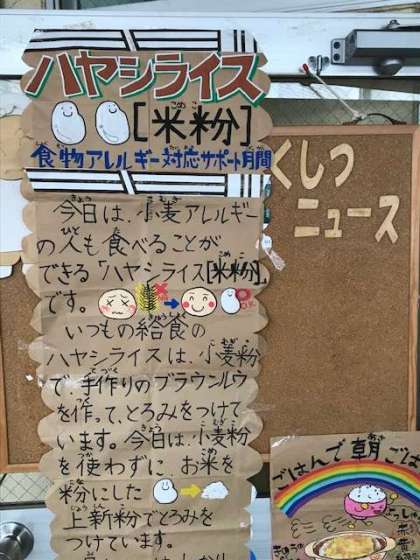 ハヤシライス
[米粉]
食物アレルギー対応サポート月間
今日は、小麦アレルギー
の人も食べることが
できる「ハヤシライス[米粉]」
です。
いつもの給食の
ハヤシライスは、小麦粉
で、手作りのブラウンルウ
を作って、とろみをつけて
います。今日は、小麦粉
を使わずに、お米を
粉にした
上新粉でとろみを
つけています。
くしつ
ニュース
ごはんで朝ごは